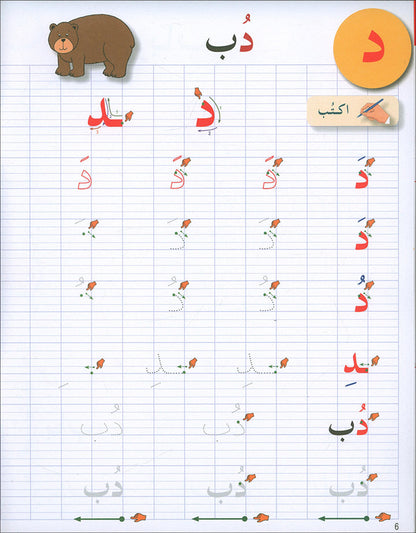 د
دُب
اكتُب
د ـد
دَ دَ دَ دَ
دَ دَ دَ
دُ دُ دُ
ـدِ ـدِ ـدِ
دُب دُب دُب
دُب دُب دُب
6